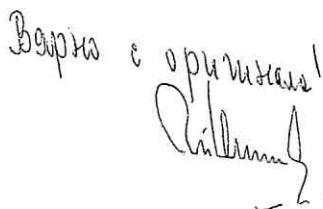 Вярно с оригинала!